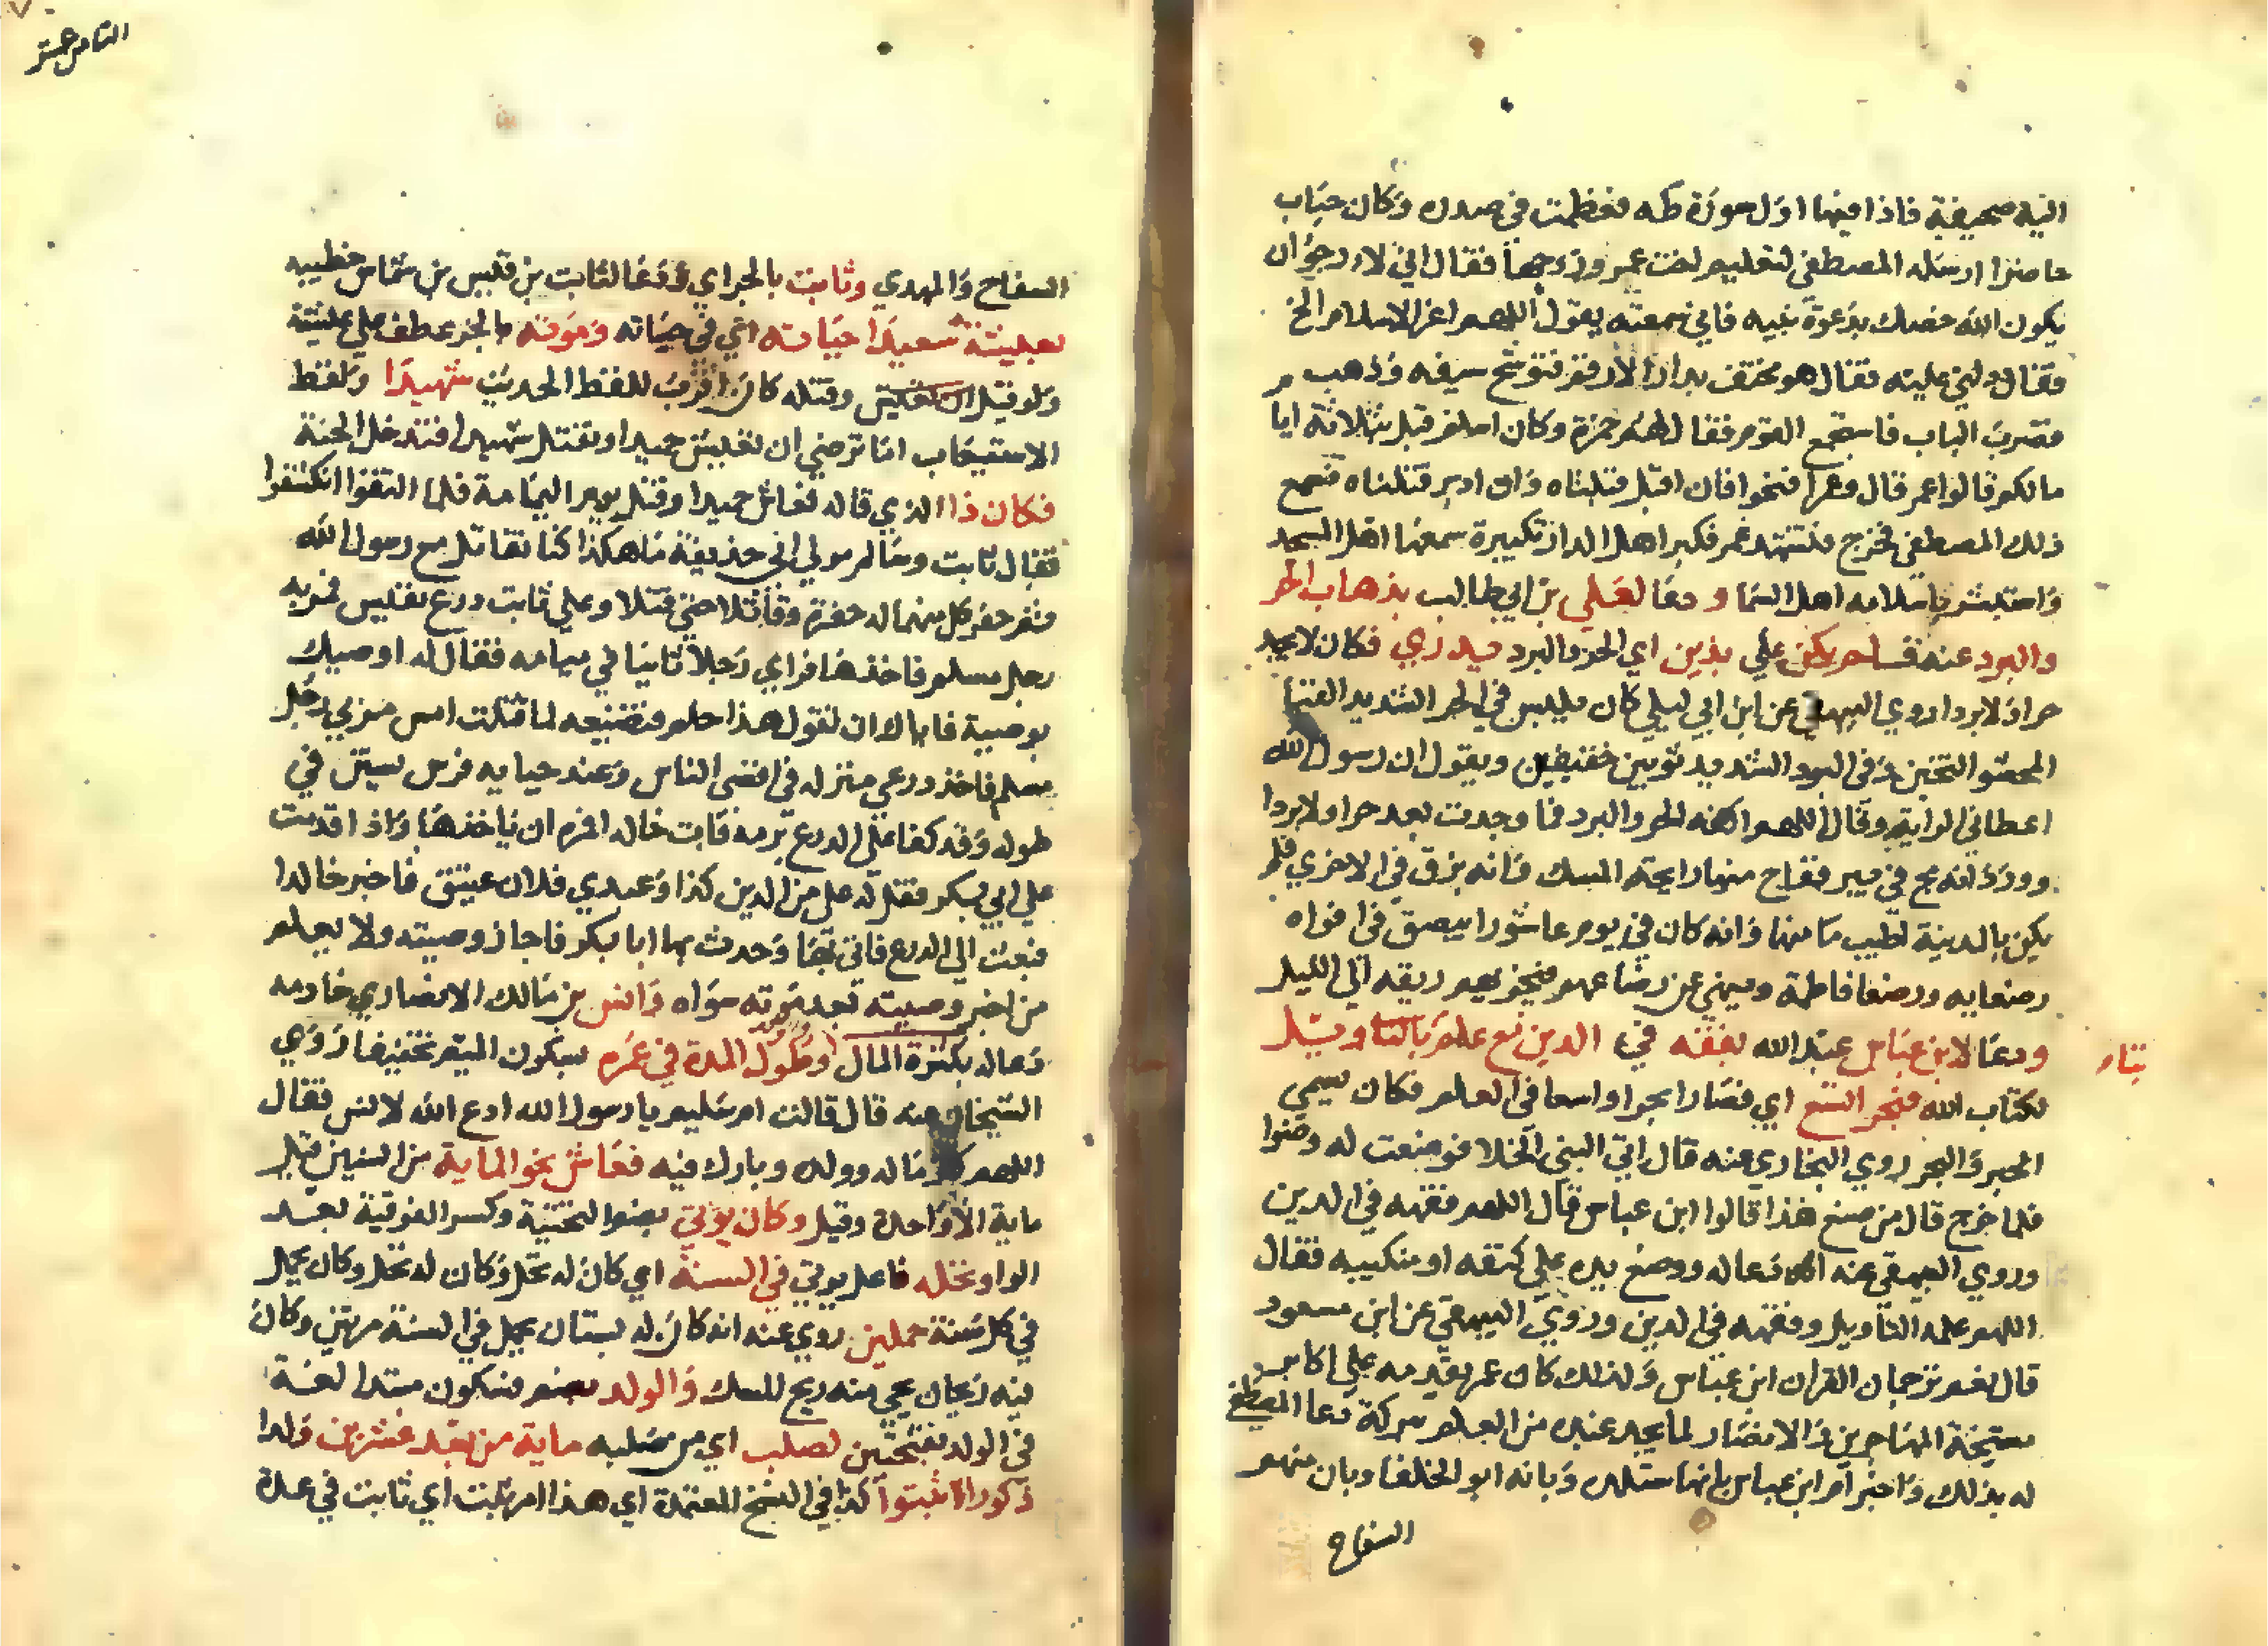 اليه صحيفة فاذا فيها اول سورة طه فعظمت في صدره وكان خباب
حاضرا ارسله المصطفى لتعليم اخت عمر وزوجها فقال اني لارجو ان
يكون الله خصك بدعوة نبيه فاني سمعته يقول اللهم اعز الاسلام الخ
فقال دلني عليه فقال هو مختف بدار الارقم فتوشح سيفه وذهب
فضرب الباب فاستجمع القوم فقال لهم حمزة وكان اسلم قبل بثلاثة ايا م
مالكم قالوا عمر قال وعمر افتحوا فان اقبل قبلناه وان ادبر قتلناه فسمع
ذلك المصطفى فخرج فتشهد عمر فكبر اهل الدار تكبيرة سمعها اهل المسجد
واستبشر باسلامه اهل السما ودعا لعلي بن ابي طالب بذهاب الحر
والبرد عنه فلم يكن علي بذين اي الحر والبرد يدري فكان لا يجد
حرا ولا بردا روي البيهقي عن ابن ابي ليلي كان علي يلبس في الحر الشديد القبا
المحشو الثخين وفي البرد الشديد ثوبين خفيفين ويقول ان رسول الله
اعطاني الراية وقال اللهم اكفه الحر والبرد فما وجدت بعد حرا ولا بردا
وورد انه مج في بير ففاح منها رايحة المسك وانه بزق في الاخري فلم
يكن بالمدينة اطيب ما منها وانه كان في يوم عاشورا يبصق في افواه
رضعايه ورضعا فاطمة وينهي عن رضاعهم فيجزيهم ريقه الي الليل
ودعا لابن عباس عبد الله بفقه في الدين مع علم بالتاويل
بتا ر
لكتاب الله فبحر اتسع اي فصار بحرا واسعا في العلم فكان يسمي
الحبر والبحر روي البخاري عنه قال اتي النبي الخلا فوضعت له وضوا
فلما خرج قال من صنع هذا قالوا ابن عباس قال اللهم فقهه في الدين
وروي البيهقي عنه انه دعا له ووضع يده علي كتفه او منكبيه فقال
اللهم علمه التاويل وفقهه في الدين وروي البيهقي عن ابن مسعود
قال نعم ترجمان القران ابن عباس ولذلك كان عمر يقدمه علي اكابر
مشيخة المهاجرين والانصار لما يجد عنده من العلم ببركة دعا المصطفى
له بذلك واخبر ام ابن عباس بانها ستلد وبانه ابو الخلفا وبان منهم
السفاح
الثامن عشر
السفاح والمهدي وثابت بالجر اي ودعا لثابت بن قيس بن شماس خطيبه
بعيشة سعيدا حياته اي في حياته وموته بالجر عطف علي عيشة
ولو قيل ان يعيش وقتله كان اقرب للفظ الحديث شهيدا ولفظ
الاستيعاب اما ترضي ان تعيش حميدا وتقتل شهيدا فتدخل الجنة
فكان ذا الذي قاله فعاش حميدا وقتل يوم اليمامة فلما التقوا انكشفوا
فقال ثابت وسالم مولي ابي حذيفة ما هكذا كنا نقاتل مع رسول الله
ثم حفر كل منهما له حفرة وقاتلا حتى قتلا وعلي ثابت درع نفيس فمر به
رجل مسلم فاخذها فراي رجلا ثابتا في منامه فقال له اوصيك
بوصية فاياك ان تقول هذا حلم فتضيعه لما قتلت امس مر بي رجل
مسلم فاخذ درعي منزله في اقصى الناس وعند خبايه فرس يستن في
طوله وقد كفا علي الدرع برمة فات خالد افمره ان ياخذها واذا قدمت
علي ابي بكر فقل له علي من الدين كذا وعبدي فلان عتيق فاخبر خالدا
فبعث الي الدرع فاتي بها وحدث بها ابا بكر فاجاز وصيته ولا يعلم
من اخبر وصيته بعد موته سواه وانس بن مالك الانصاري خادمه
دعا له بكثرة المال وطول المدة في عمره بسكون الميم تخفيفا روي
الشيخان عنه قال قالت ام سليم يا رسول الله ادع الله لانس فقال
اللهم كثر ماله وولده وبارك فيه فعاش نحو الماية من السنين قيل
ماية الا واحدة وقيل وكان يوتي بضم التحتية وكسر الفوقية بعد
الواو نخله فاعل يوتي في السنة اي كان له نخل وكان له نخل وكان يحمل
في كل سنة حملين روي عنه انه كان له بستان يحمل في السنة مرتين وكان
فيه ريحان يجي منه ريح المسك والولد بضم فسكون مبتدا لغة
في الولد بفتحتين لصلب اي من صلبه ماية من بعد عشرين ولدا
ذكورا اثبتوا كذا في النسخ المعتمدة اي هذا امر ثبت اي ثابت في عدة